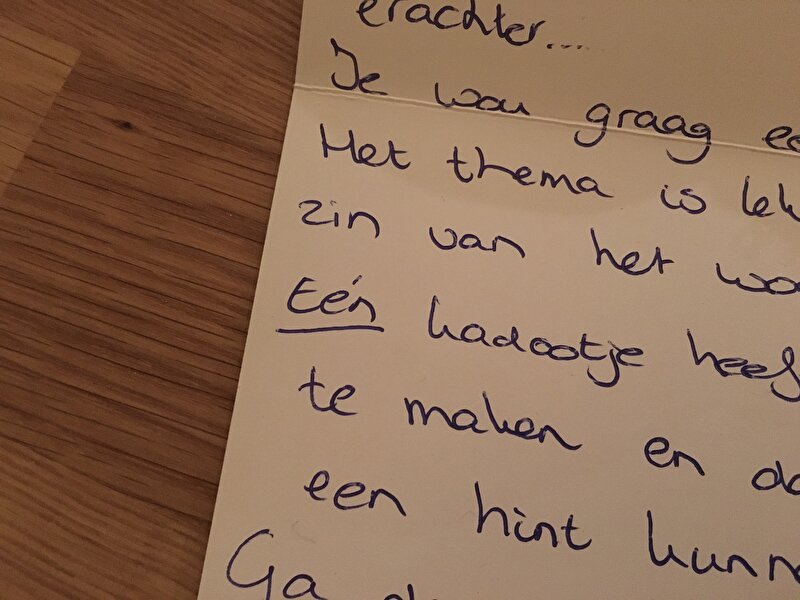 erachter...
Je wou graag ee
Het thema is lek
zin van het woo
Eén kadootje heef
te maken en da
een hint kunn
Ga